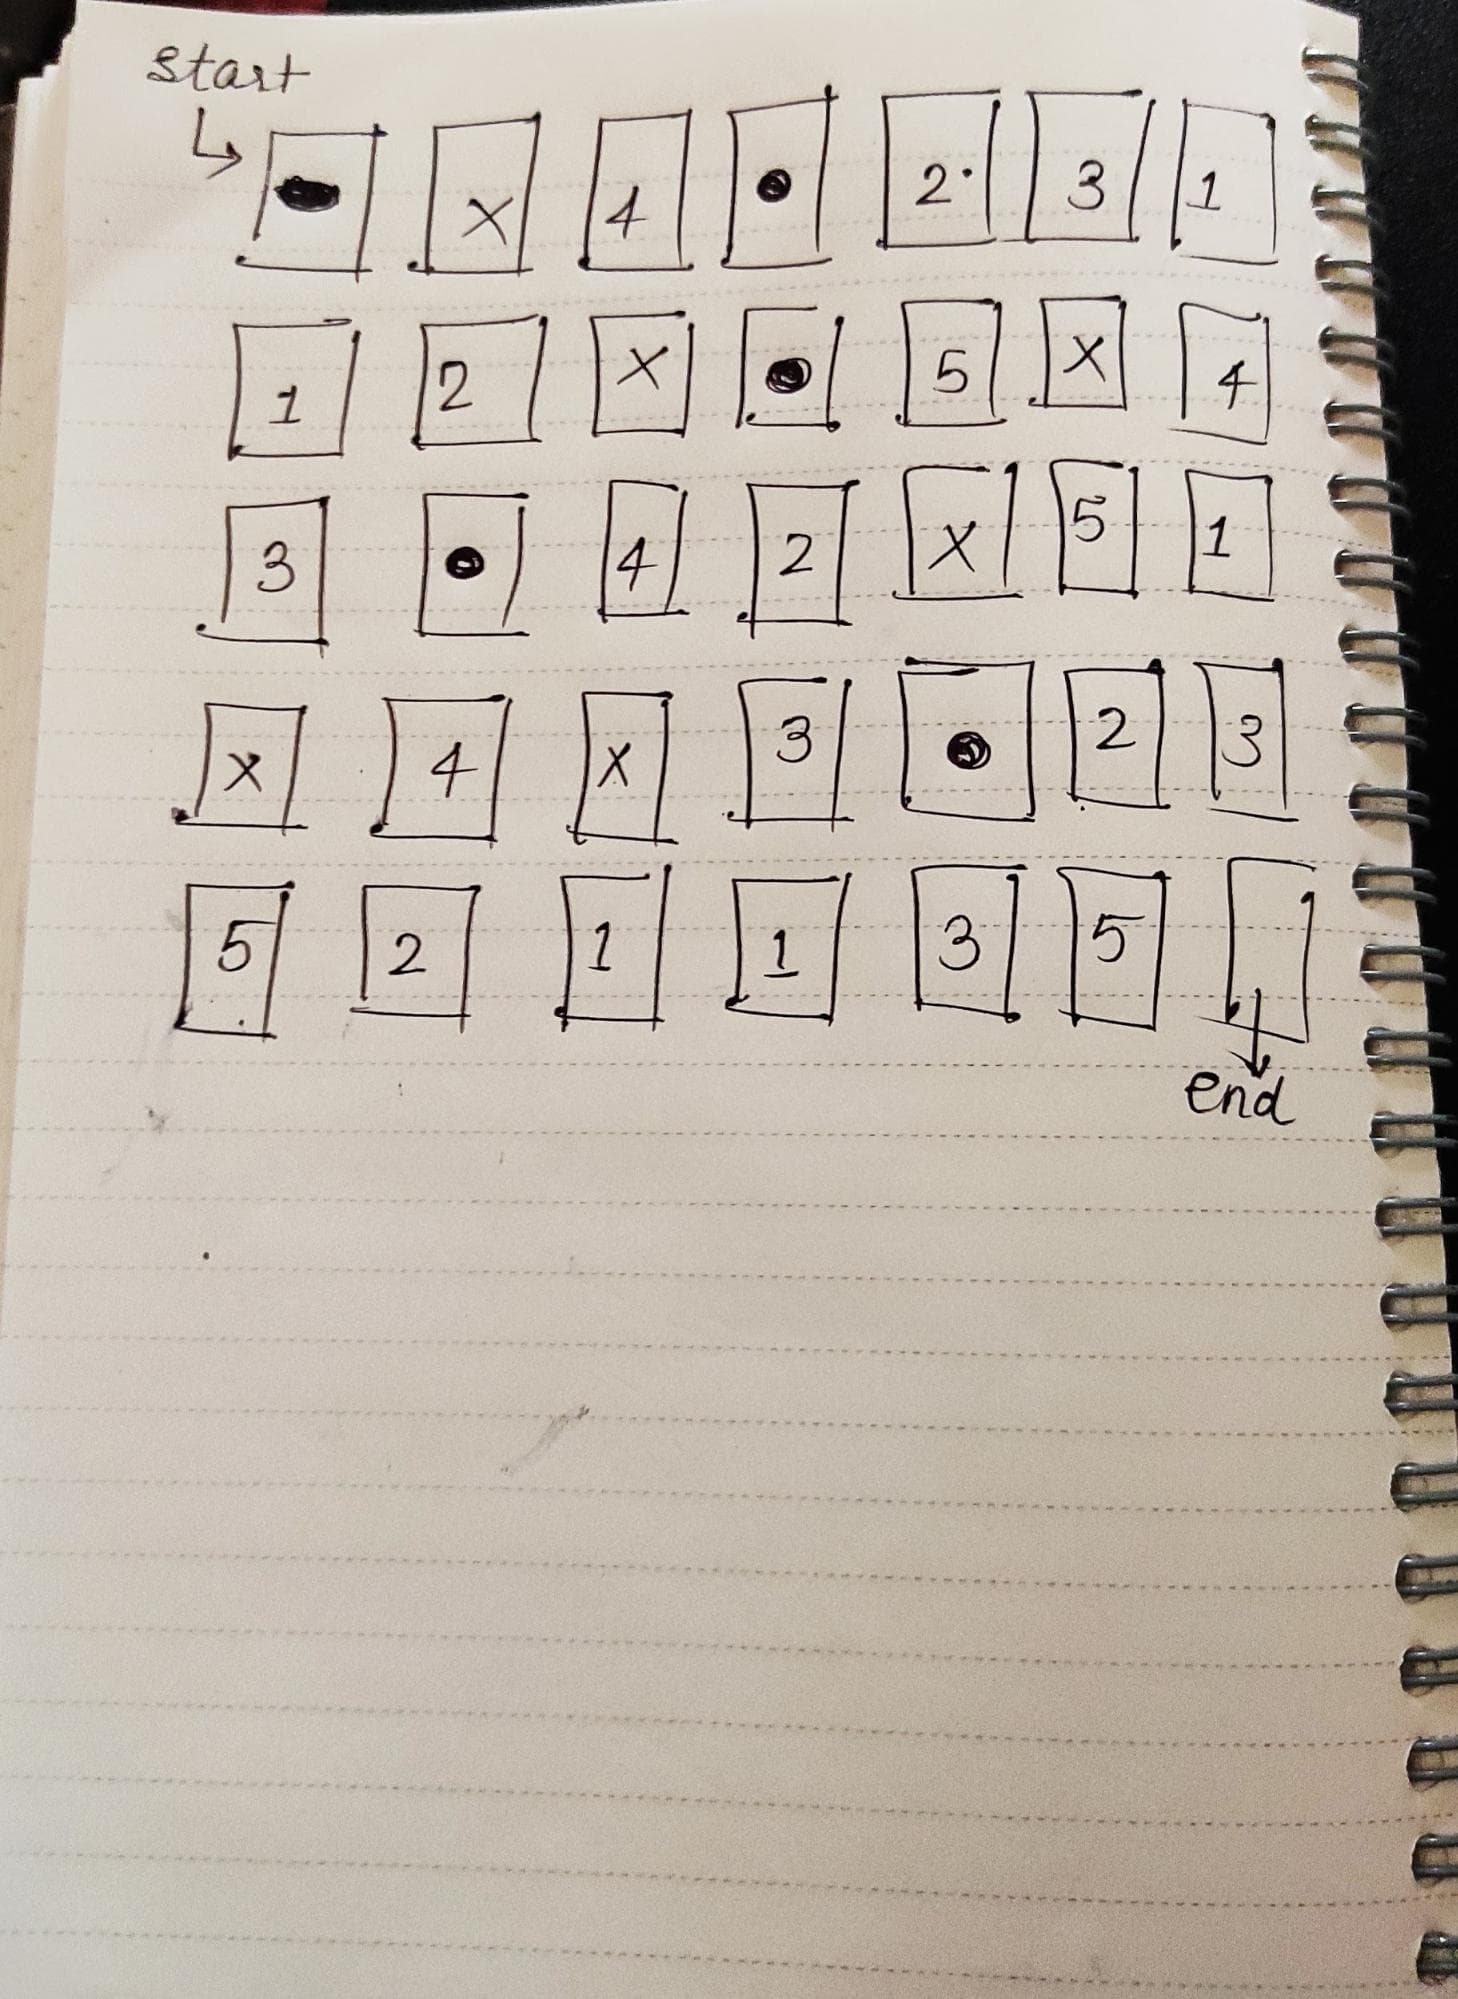 start
● X 4 ● 2 3 1
1 2 X ● 5 X 4
3 ● 4 2 X 5 1
X 4 X 3 ● 2 3
5 2 1 1 3 5
end